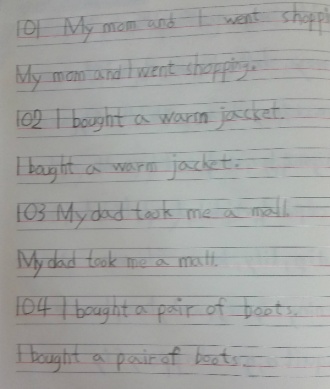 101 My mom and I went shoppi
My mom and I went shopping.
102 I bought a warm jacket.
I bought a warm jacket.
103 My dad took me a mall.
My dad took me a mall.
104 I bought a pair of boots.
I bought a pair of boots.